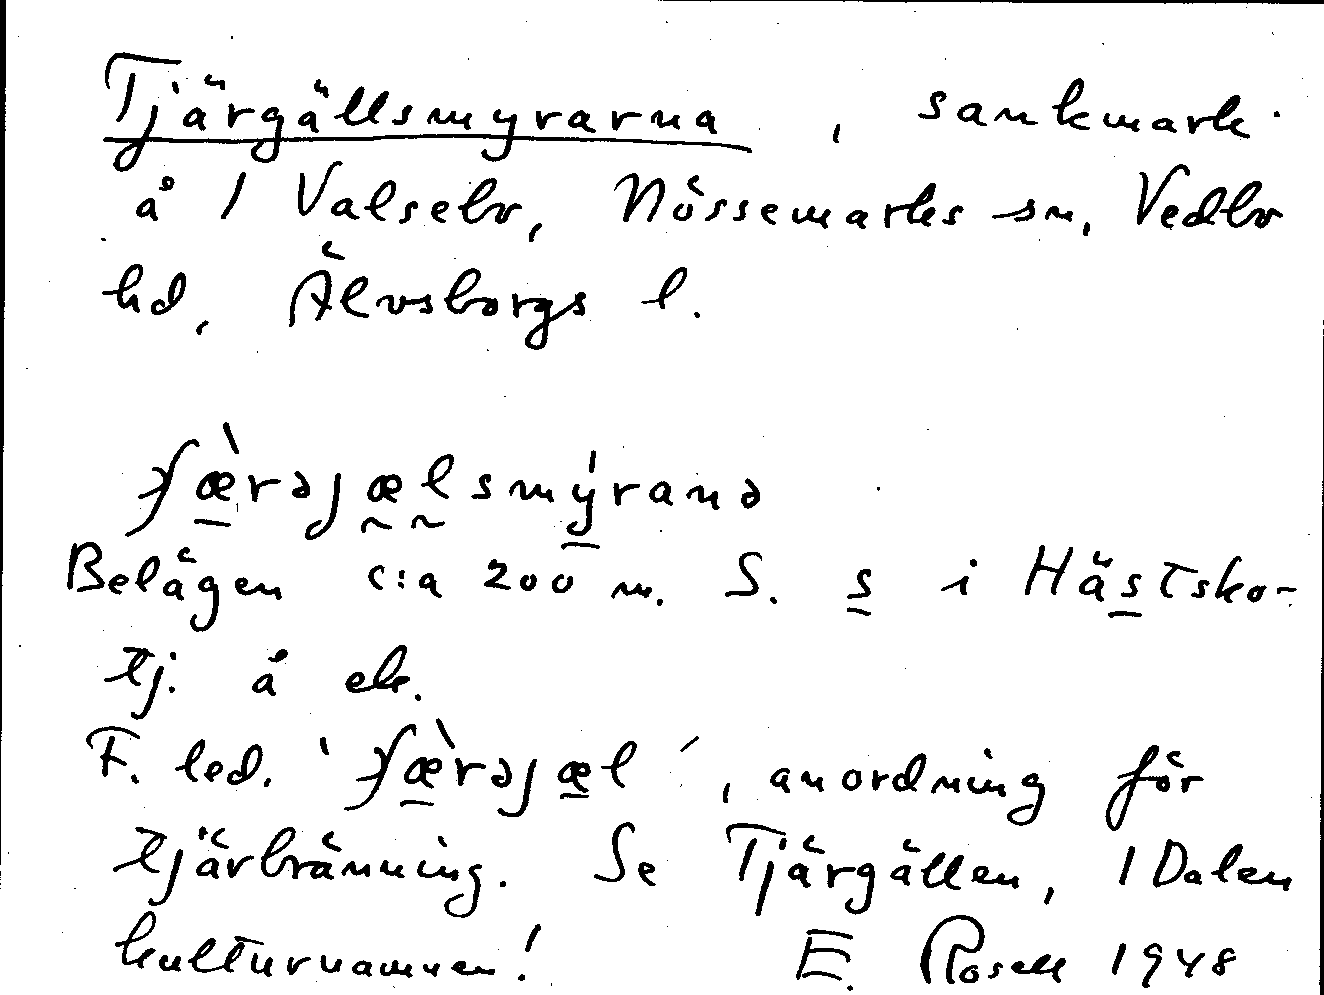 Tjärgällsmyrarna, sankmark
å 1 Valsebo, Nössemarks sn, Vedbo
hd, Älvsborgs l.
ʃæ̀rəȷælsmýranə
Belägen c:a 200 m. S. s i Hästsko-
tj. å ek.
F. led. 'ʃæ̀rəȷæl', anordning för
tjärbränning. Se Tjärgällen, 1 Dalen
kulturnamnen!
E. Rosell 1948